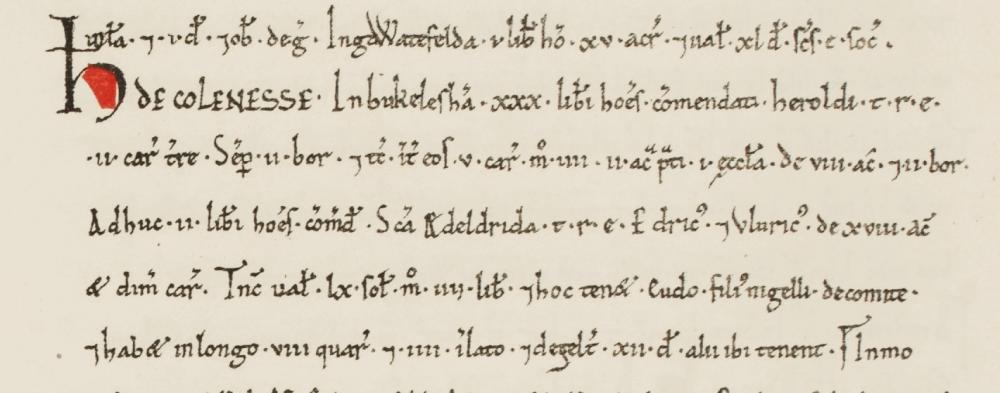 & lat̃a · ⁊ · v · đ · ⁊ ob̃ · de g̃ · In gaWatefelda · v lib̃ hõ · xv · acr̃ · ⁊ ual̃ · xl đ · sc̃s · e · soc̃ ·
h DE COLENESSE · In bukeleshã · xxx · lib̃i hoẽs · cõmendati · heroldi · t · r · e ·
· ii · car̃ tr̃re · Sẽp · ii · bor · ⁊ tc̃ · it̃ eos · v · car̃ · m̊ · iiii · ii · ac̃ p̃ti · i · ęccl̃a · de viii · ac̃ · ⁊ · ii · bor ·
Adhuc · ii · lib̃i hoẽs · cõmđ · Scã Ædeldrida · t · r · e · Edricꝰ · ⁊ Vluricꝰ · de xviii · ac̃
& dim̃ car̃ · Tnc̃ ual̃ · lx · sol̃ · m̊ · iiij · lib̃ · ⁊ hoc ten& · Eudo · filiꝰ nigelli · de comite ·
⁊ hab& in longo · viii quar̃ · ⁊ · iiii · ĩ lato · ⁊ de gelt̃ · xii · đ · alii ibi tenent · ſ In mo